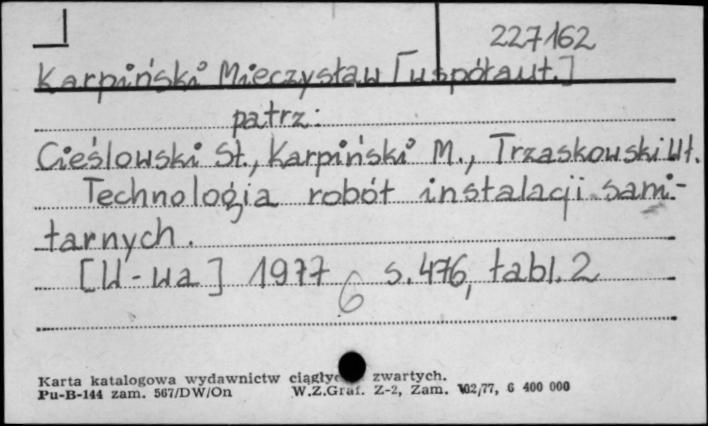 227162
Karpiński Mieczysław [współaut.]
patrz:
Cieślowski St., Karpiński M., Trzaskowski Wł.
Technologia robót instalacji sani-
tarnych.
[W-wa] 1977 s. 476, tabl. 2
6
Karta katalogowa wydawnictw zwartych.
Pu-B-144 zam. 567/DW/On W.Z.Graf. Z-2, Zam. 102/77, 6 400 000